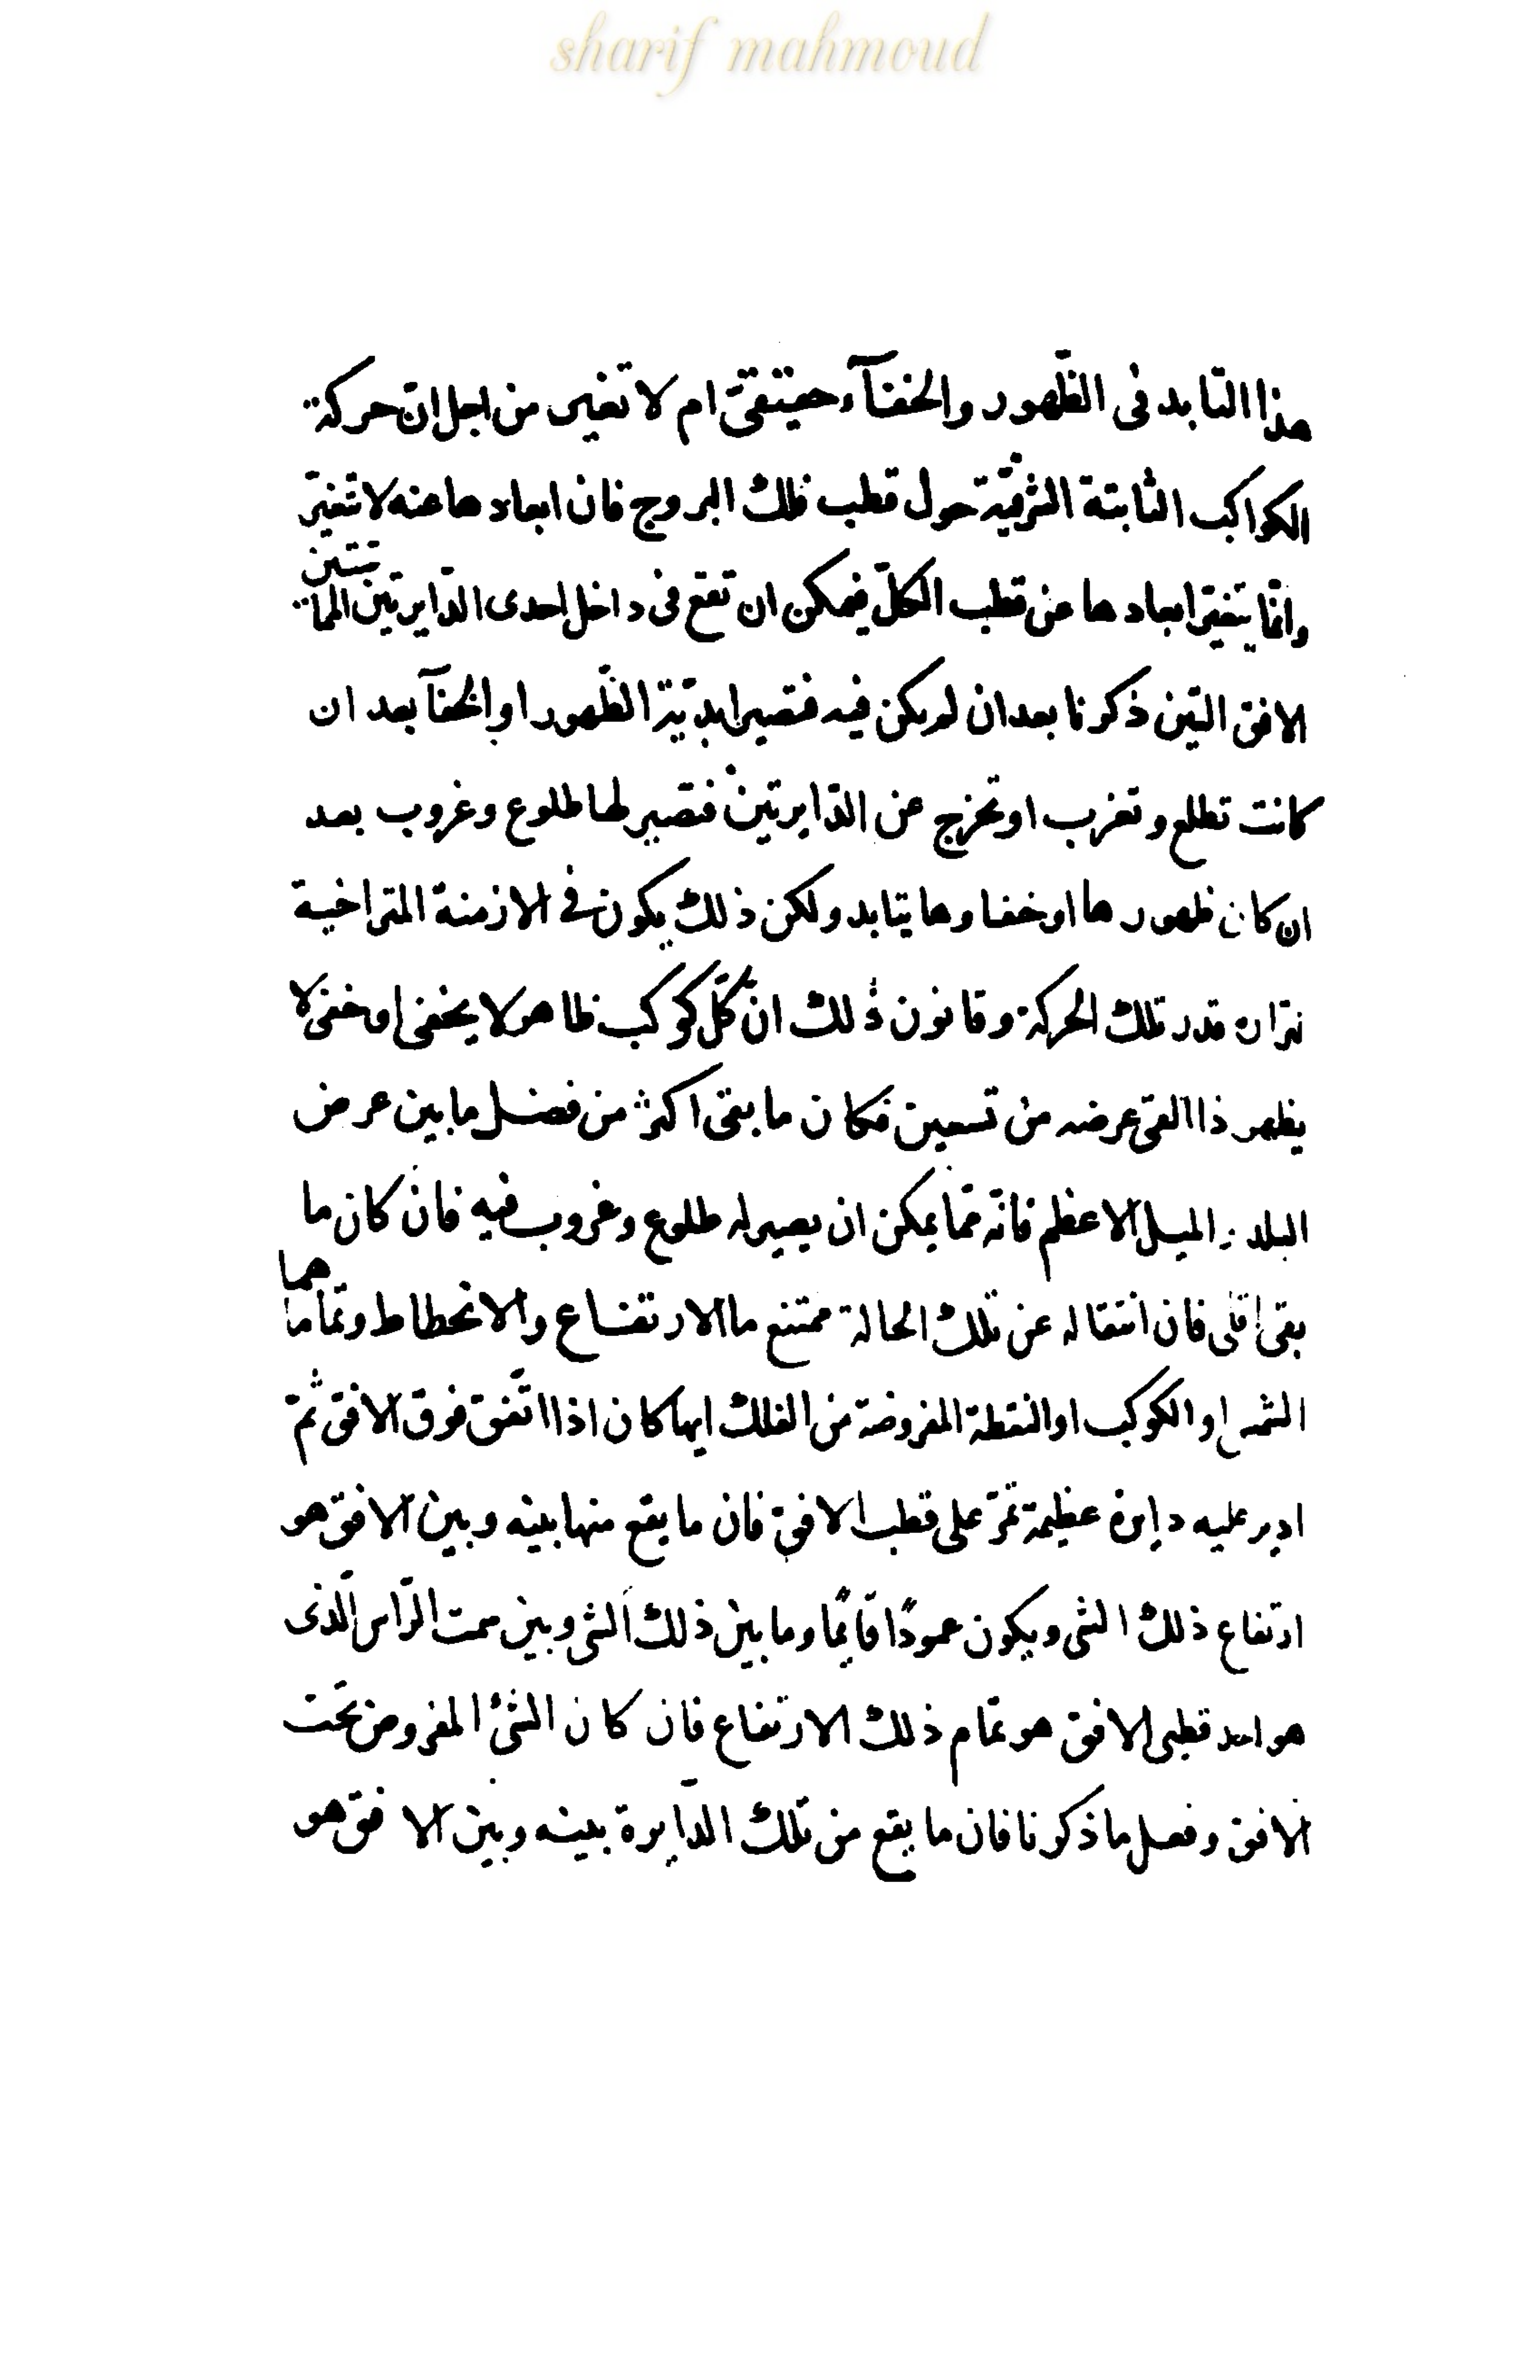 sharif mahmoud
هذا التابد فى الظهور والخفآء حقيقىّ ام لا تغير من اجل انّ حركة
الكواكب الثابتة الشرقيّة حول قطب فلك البروج فان ابعادها عنه لا تتغيّر
وانّما يتغيّر ابعادها عن قطب الكلّ فيمكن ان تقع فى داخل احدى الدّايرتين المماسّتين
الافق التين ذكرنا بعد ان لم يكن فيه فتصير ابديّة الظّهور او الخفآ بعد ان
كانت تطلع و تغرب او تخرج عن الدّايرتين فتصير لها طلوع وغروب بعد
ان كان ظهورها او خفاوها يتابد ولكن ذلك يكون فى الازمنة المتراخية
قدر تلك الحركة وقانون ذلك انّ كلّ كوكب ظاهر لا يخفى او خفى لا
يظهر ذا القى عرضه من تسعين فكان ما بقى اكثر من فضل ما بين عرض
البلد و الميل الاعظم فانّه ممّا يمكن ان يصير له طلوع وغروب فيه فان كان ما
بقى اقل فان انتقاله عن تلك الحالة ممتنع ما الارتفاع والانحطاط وتماماهما
الشمس او الكوكب او النقطة المفروضة من الفلك ايها كان اذا اتّفق فوق الافق ثمّ
ادير عليه دايرة عظيمة تمرّ على قطب الافق فان ما يقع منها بينه وبين الافق هو
ارتفاع ذلك الشى ويكون عمودًا قايمًا وما بين ذلك الشى وبين سمت الرّاس الّذى
هو احد قطبى الافق هو تمام ذلك الارتفاع فان كان الشئ المفروض تحت
الافق وفعل ما ذكرنا فان ما يقع من تلك الدّايرة بينه وبين الافق هو